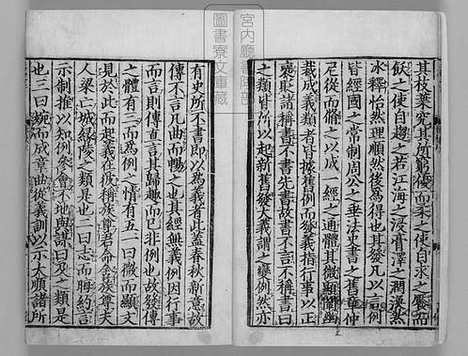 其枝葉究其所窮優而柔之使自求之饜而
飫之使自趨之若江海之浸膏澤之潤渙然
冰釋怡然理順然後為得也其發凡以言例
皆經國之常制周公之垂法史書之舊章仲
尼從而脩之以成一經之通體其微顯闡幽
裁成義類者皆據舊例而發義指行事以正
褒貶諸稱書不書先書故書不言不稱書曰
之類皆所以起新舊發大義謂之變例然亦
有史所不書即以為義者此蓋春秋新意故
傳不言凡曲而暢之也其經無義例因行事
而言則傳直言其歸趣而已非例也故發傳
之體有三而為例之情有五一曰微而顯文
見於此而起義在彼稱族尊君命舍族尊夫
人梁亡城緣陵之類是也二曰志而晦約言
示制推以知例參會不地與謀曰及之類是
也三曰婉而成章曲從義訓以示大順諸所
宮内廳書陵部
圖書寮文庫藏